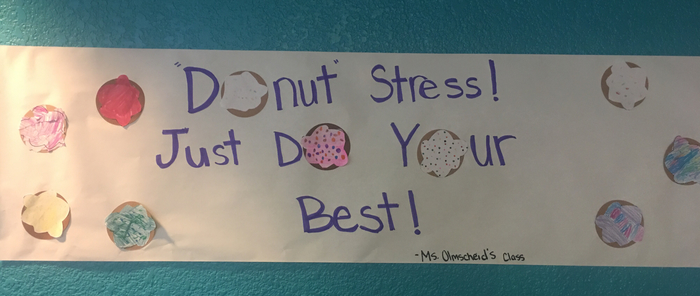 "Donut" Stress!
Just Do Your
Best!
-Ms. Olmscheid's Class